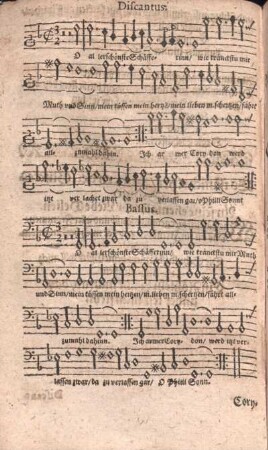 Discantus.
O al lerschönste Schäffe- rinn/ wie krenckstu mir
Muth und Sinn/ mein küssen mein hertz/ mein lieben m. schertzen/ führt
all- zumahl dahin. Ich ar mer Cory- don werd
itzt ver lachet zwar da zu verlassen gar/ o Phylli Sonn
Bassus.
O al lerschönste Schäfferinn/ wie krenckstu mir Muth
und Sinn/ mein küssen mein hertzen/ m. lieben m. schertzen/ führt all-
zumahl dahinn. Ich armer Cory- don/ werd itzt ver-
lassen zwar/ da zu verlassen gar/ O Phylli Sonn.
Cory-